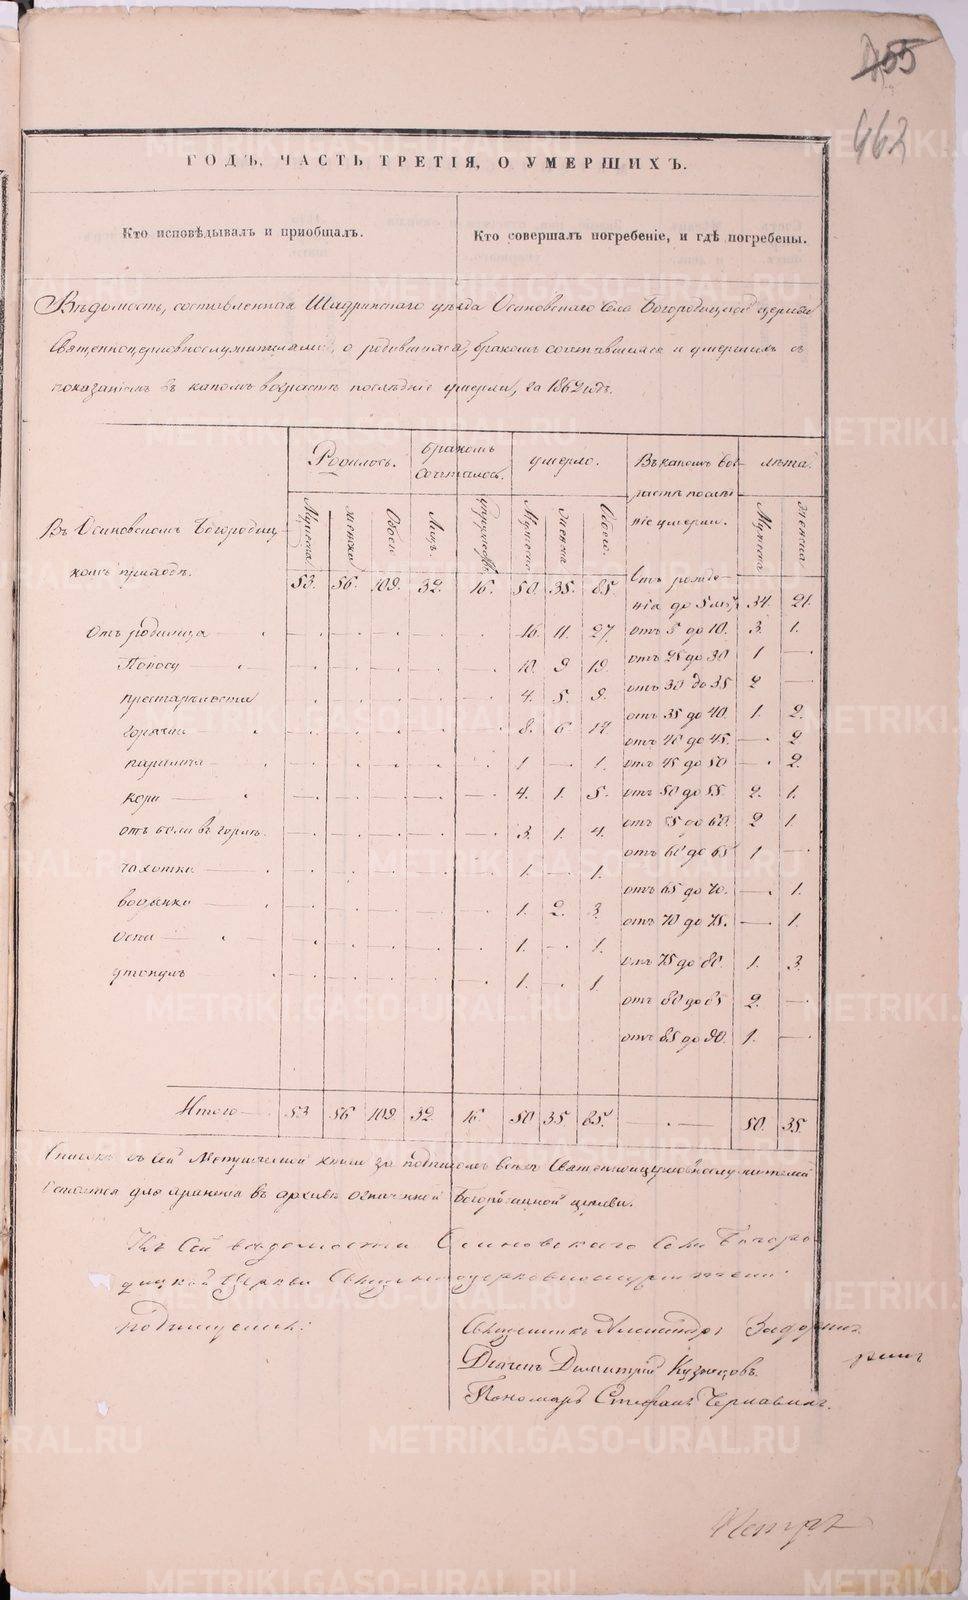 455
462
ГОДЪ, ЧАСТЬ ТРЕТІЯ, О УМЕРШИХЪ.
Кто исповѣдывалъ и пріобщалъ.
Кто совершалъ погребеніе, и гдѣ погребены.
Вѣдомость, составленная Шадринскаго уѣзда Осиновскаго села Богородицкой церкви
Священноцерковнослужителями, о родившихся, бракомъ сочетавшихся и умершихъ съ
показаніемъ въ какомъ возрастѣ послѣдніе умерли, за 1862 годъ.
Родилось.
бракомъ сочеталось.
умерло.
Въ какомъ воз-
растѣ послѣд-
ніе умерли.
лѣта.
Мужеска
женска
Обоего
Лицъ.
супружествъ.
Мужеска
женска
Обоего.
Мужеска
женска
Въ Осиновскомъ Богородиц-
комъ приходѣ.
53. 56. 109. 32. 16. 50. 35. 85. Отъ рожде-
нія до 5 лѣтъ 34. 21.
Отъ родимца 16. 11. 27. отъ 5 до 10. 3. 1.
Поносу 10. 9 19. отъ 25 до 30 1 —
престарѣлости 4. 5. 9. отъ 30 до 35 2 —
горячки 8. 6 14. отъ 35 до 40. 1. 2.
отъ 40 до 45. — 2
паралича 1 — 1. отъ 45 до 50 — 2.
кори 4. 1. 5. отъ 50 до 55. 2. 1.
отъ боли въ горлѣ. 3. 1. 4. отъ 55 до 60. 2 1.
чахотки 1. 1. отъ 60 до 65 1 —
водянки 1. 2. 3. отъ 65 до 70. — 1.
отъ 70 до 75. — 1.
оспы 1. 1. отъ 75 до 80 1. 3.
утонулъ 1. 1. отъ 80 до 85 2. —
отъ 85 до 90. 1. —
Итого 53 56 109. 32. 16. 50. 35. 85. 50. 35.
Списокъ съ сей Метрической книги за подписомъ всѣхъ Священноцерковнослужителей
остается для храненія въ архивѣ означенной Богородицкой церкви.
Къ сей вѣдомости Осиновскаго села Богоро-
дицкой Церкви Священноцерковнослужители
подписуемся:
Священникъ Александръ Задоринъ
ринъ
Дьячекъ Димитрій Кузнецовъ.
Пономарь Стефанъ Чернавинъ.
METRIKI.GASO-URAL.RU